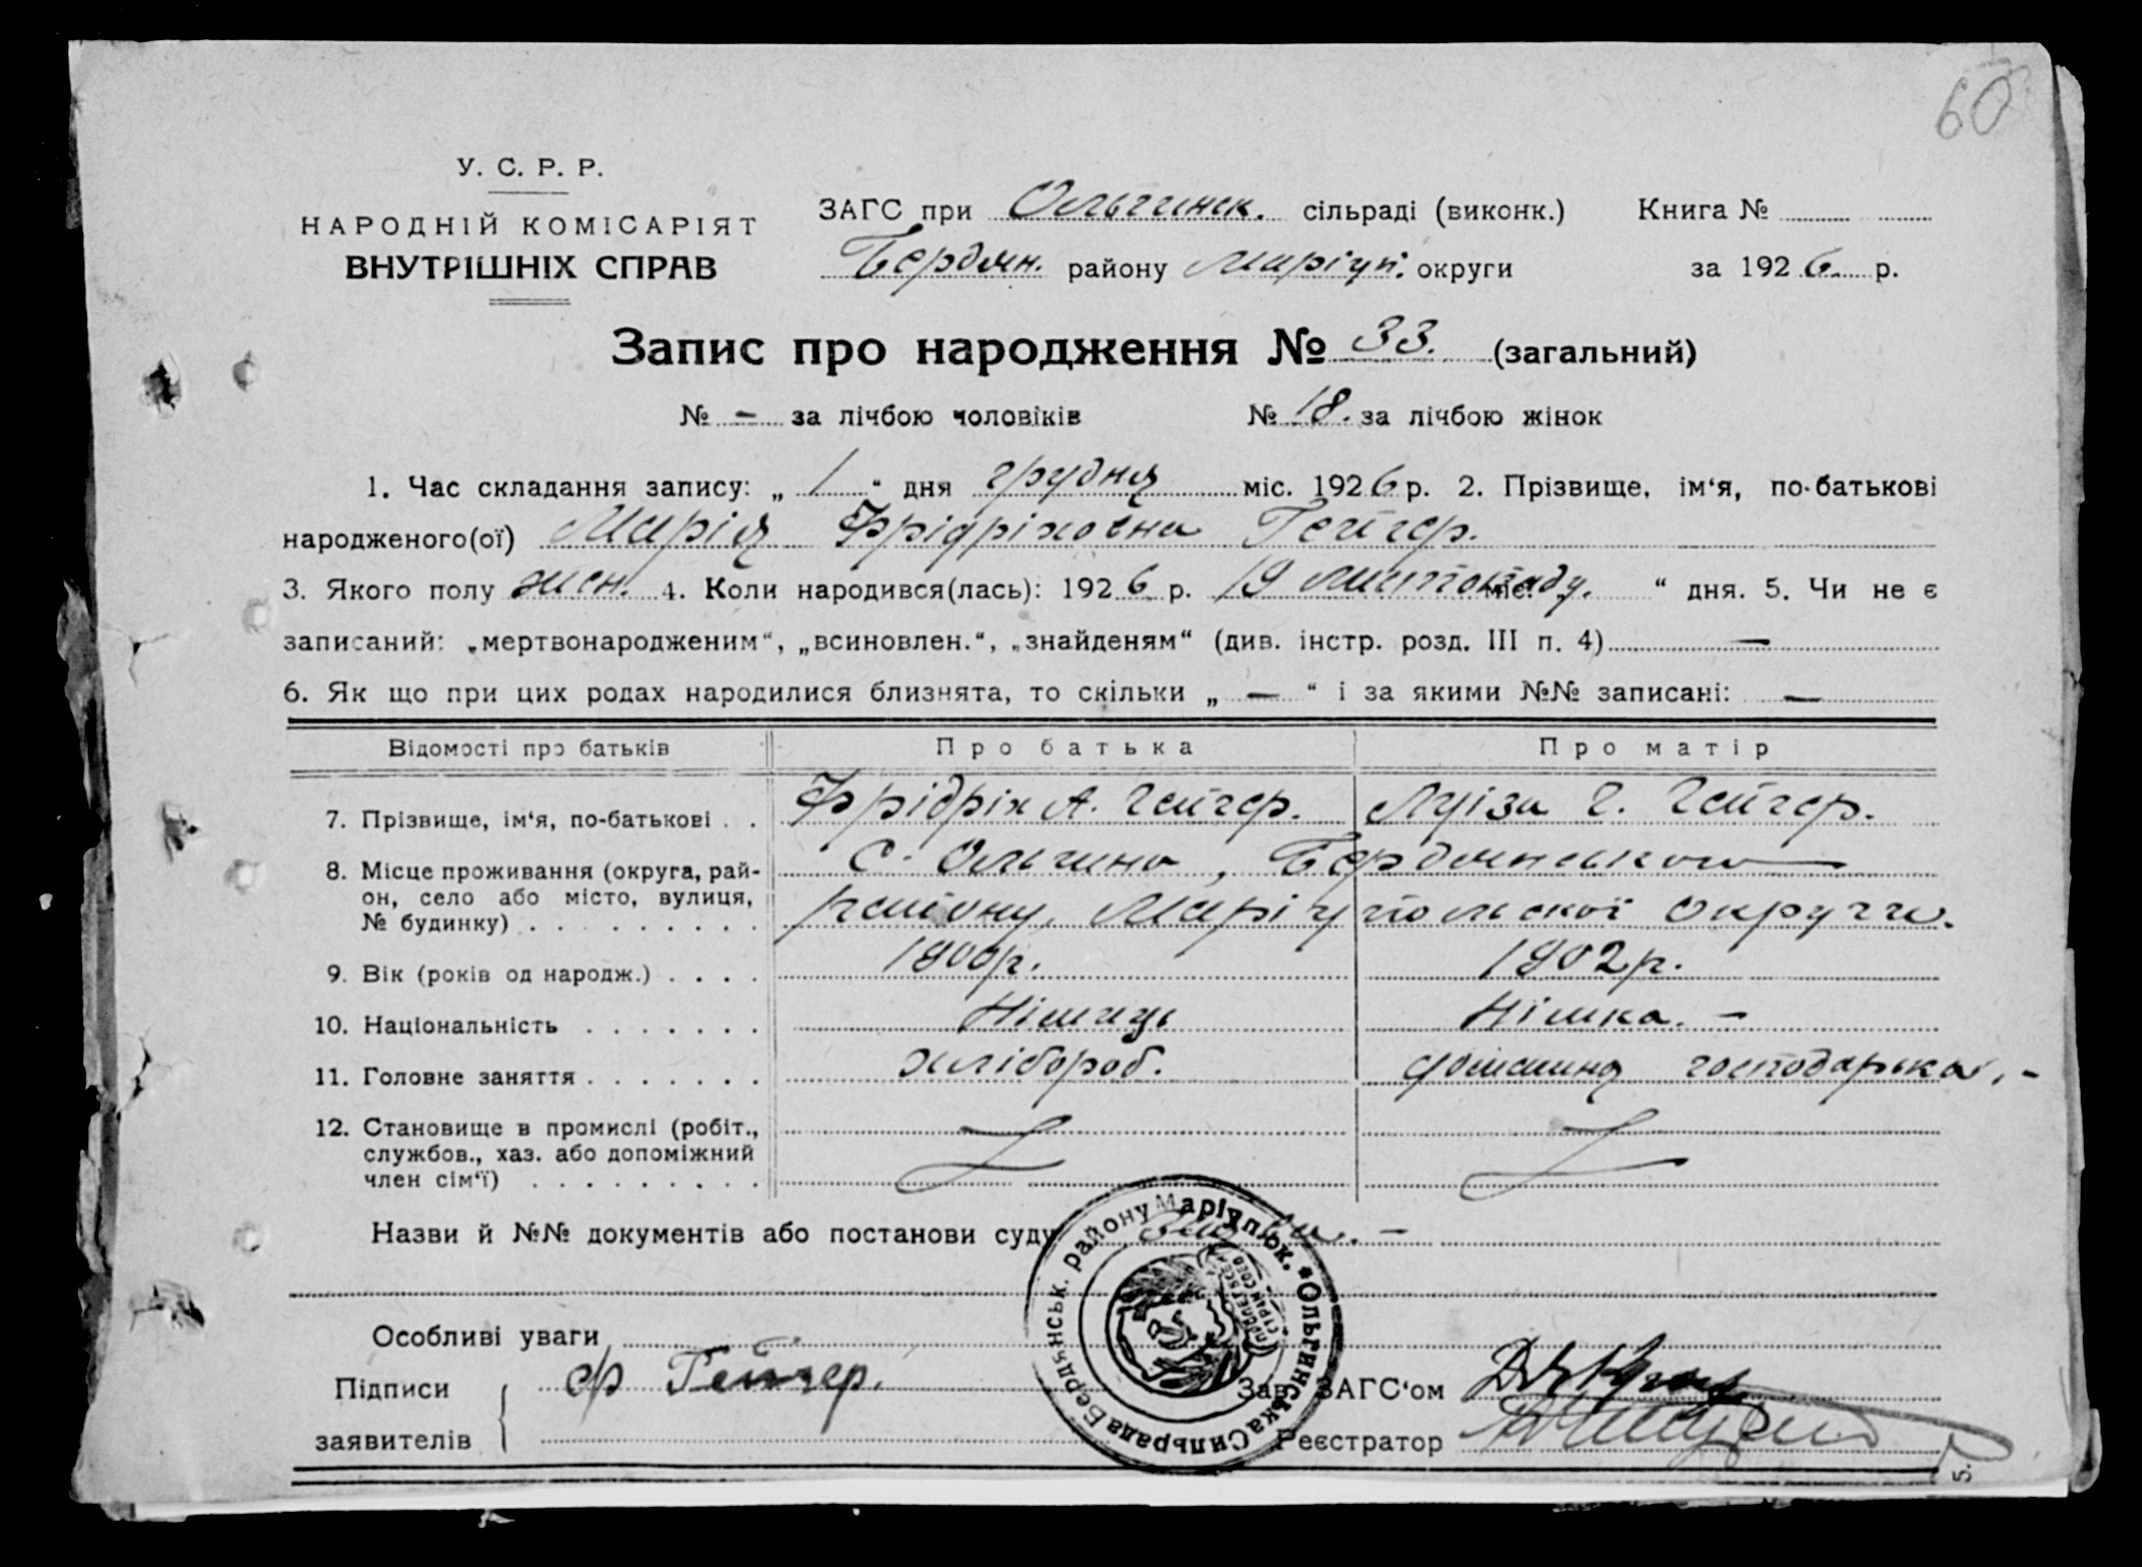 60
У. С. Р. Р.
НАРОДНІЙ КОМІСАРІЯТ
ВНУТРІШНІХ СПРАВ
ЗАГС при Ольгинск. сільраді (виконк.) Книга №
Бердян. району Маріуп. округи за 1926 р.
Запис про народження № 33. (загальний)
№ – за лічбою чоловіків № 18. за лічбою жінок
1. Час складання запису: „ 1 “ дня грудня міс. 1926 р. 2. Прізвище, ім‘я, по-батькові
народженого(ої) Марія Фрідріховна Гейгер.
3. Якого полу жен. 4. Коли народився(лась): 1926 р. 19 листопаду. міс. “ дня. 5. Чи не є
записаний: „мертвонародженим“, „всиновлен.“, „знайденям“ (див. інстр. розд. III п. 4) —
6. Як що при цих родах народилися близнята, то скільки „ — “ і за якими №№ записані: —
Відомості про батьків Про батька Про матір
7. Прізвище, ім‘я, по-батькові . . Фрідріх А. Гейгер. Луіза Г. Гейгер.
8. Місце проживання (округа, рай- С. Ольгино, Бердянського
он, село або місто, вулиця, району, Маріупольскої Округи.
№ будинку) . . . . . . . . .
9. Вік (років од народж.) . . . . 1900р. 1902р.
10. Національність . . . . . . . Німець Німка. –
11. Головне заняття . . . . . . . Хлібороб. домашня господарька. –
12. Становище в промислі (робіт.,
службов., хаз. або допоміжний
член сім‘ї) . . . . . . . . .
Назви й №№ документів або постанови суду
Особливі уваги
Підписи Ф Гейгер. Зав. ЗАГС‘ом
заявителів Реєстратор
Ольгинська Сильрада Бердянськ. району Маріупльк.
ПРОЛЕТ ВСЕХ
СТРАН СОЕД
5.